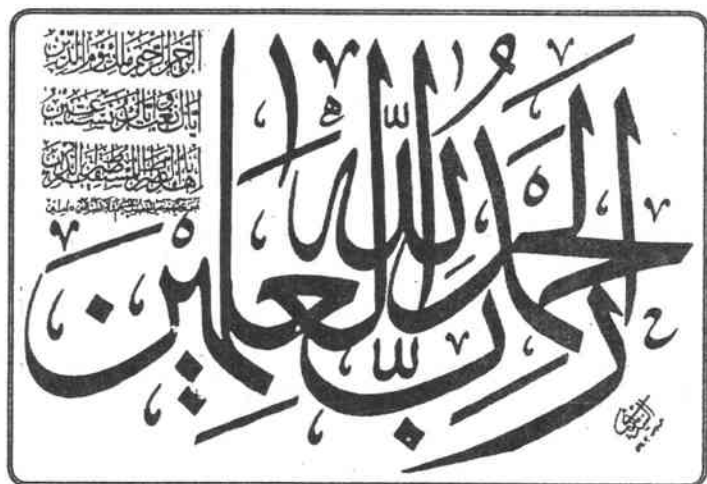 الحمد لله رب العلمين
الرحمن الرحيم ملك يوم الدين
اياك نعبد واياك نستعين
اهدنا الصراط المستقيم صراط الذين
انعمت عليهم غير المغضوب عليهم ولا الضالين